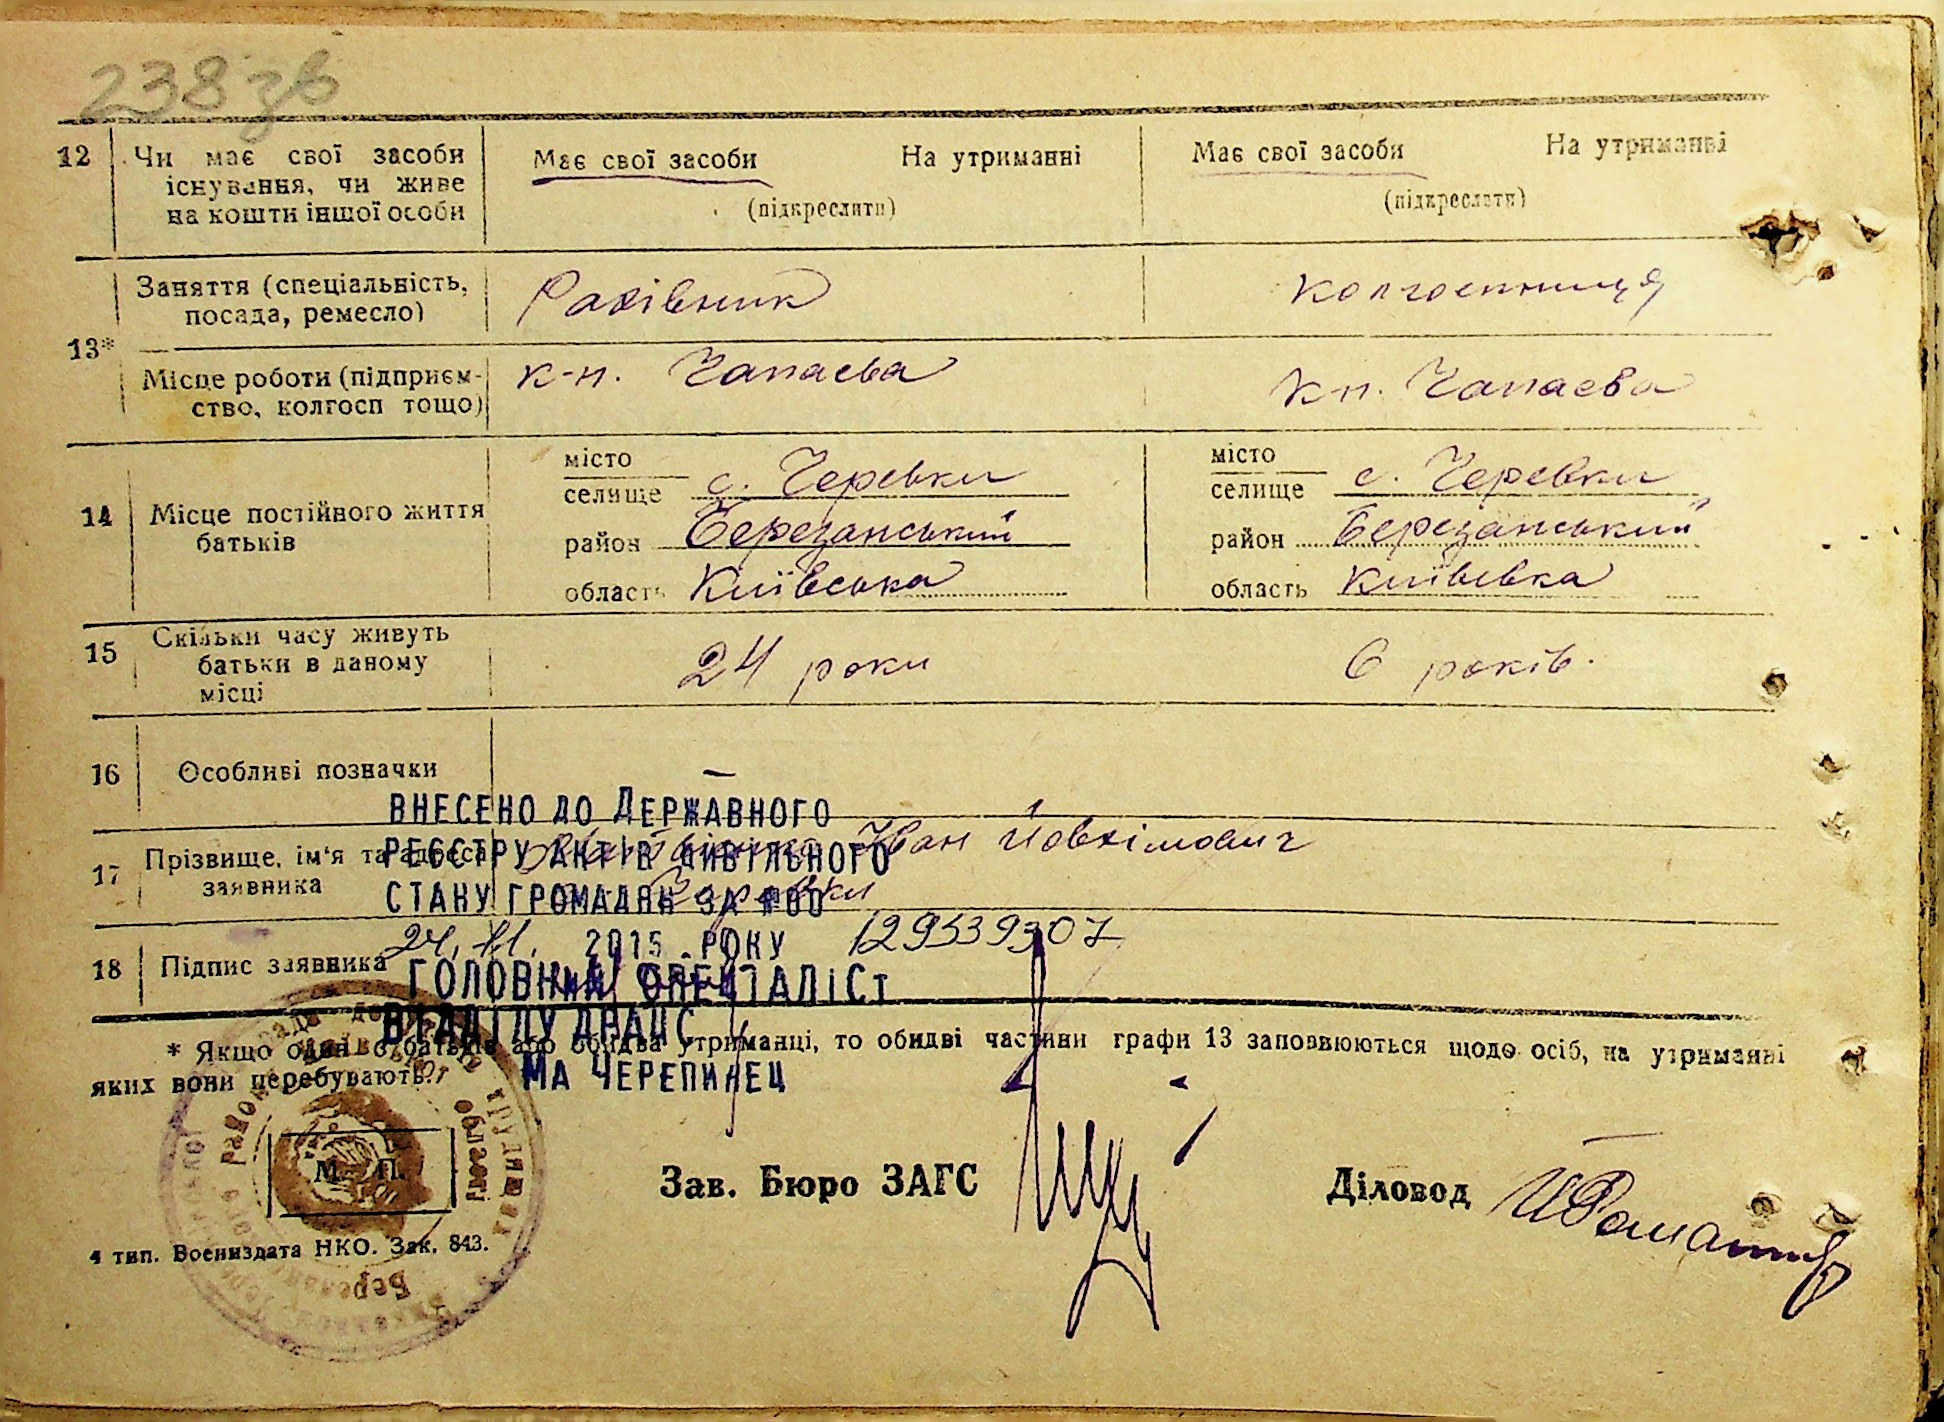 238 зв
12 Чи має свої засоби існування, чи живе на кошти іншої особи
Має свої засоби На утриманні
(підкреслити)
Має свої засоби На утриманні
(підкреслити)
13*
Заняття (спеціальність, посада, ремесло)
Рахівник
колгоспниця
Місце роботи (підприємство, колгосп тощо)
к-п. Чапаєва
к-п. Чапаєва
14 Місце постійного життя батьків
місто
селище с. Черевки
район Березанський
область Київська
місто
селище с. Черевки
район Березанський
область Київська
15 Скільки часу живуть батьки в даному місці
24 роки
6 років.
16 Особливі позначки
—
17 Прізвище, ім'я та адреса заявника
Іван Йовхімович
Черевки
18 Підпис заявника
ВНЕСЕНО ДО ДЕРЖАВНОГО
РЕЄСТРУ АКТІВ ЦИВІЛЬНОГО
СТАНУ ГРОМАДЯН ЗА №00
24.11. 2015 РОКУ 129339307
ГОЛОВНИЙ СПЕЦІАЛІСТ
ВІДДІЛУ ДРАЦС
МА ЧЕРЕПИНЕЦ
* Якщо один з батьків або обидва утриманці, то обидві частини графи 13 заповнюються щодо осіб, на утриманні
яких вони перебувають.
М. П.
Зав. Бюро ЗАГС
Діловод
4 тип. Воениздата НКО. Зак. 843.